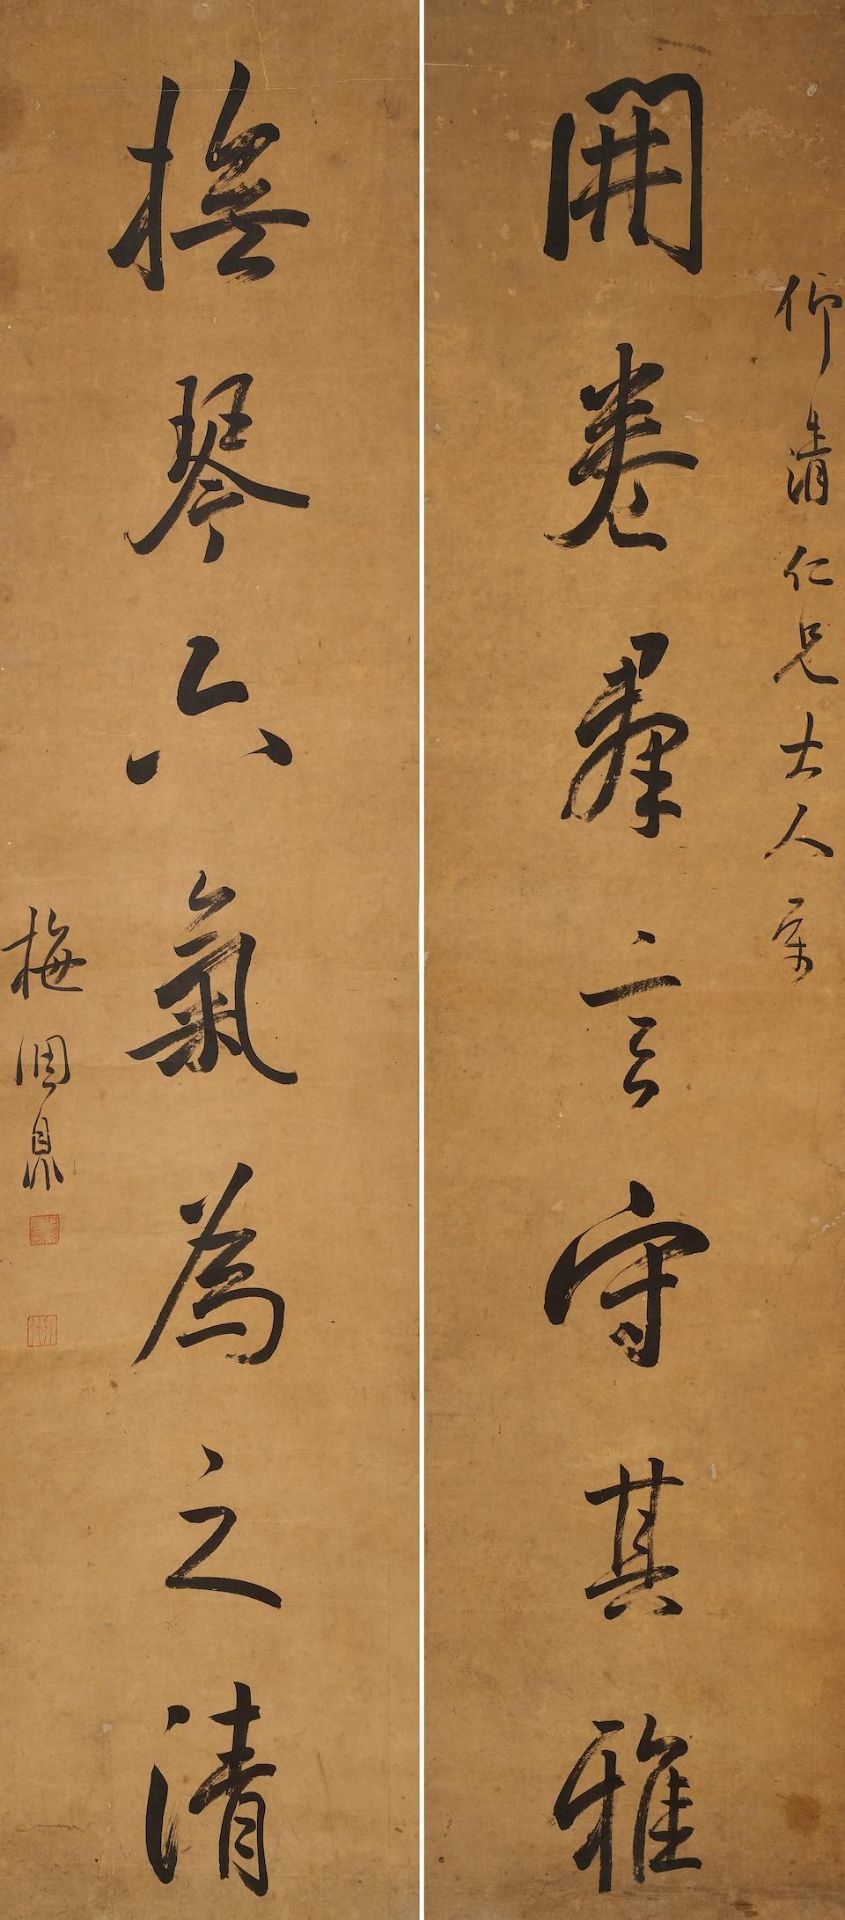 仰清仁兄大人属
開卷群言守其雅
撫琴六氣為之清
梅調鼎